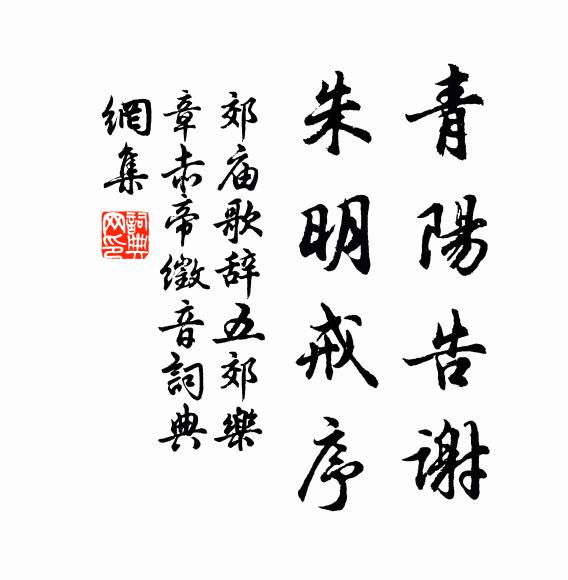 青陽告謝
朱明戒序
郊庙歌辞五郊樂
章赤帝徵音詞典
網集
詞典网印